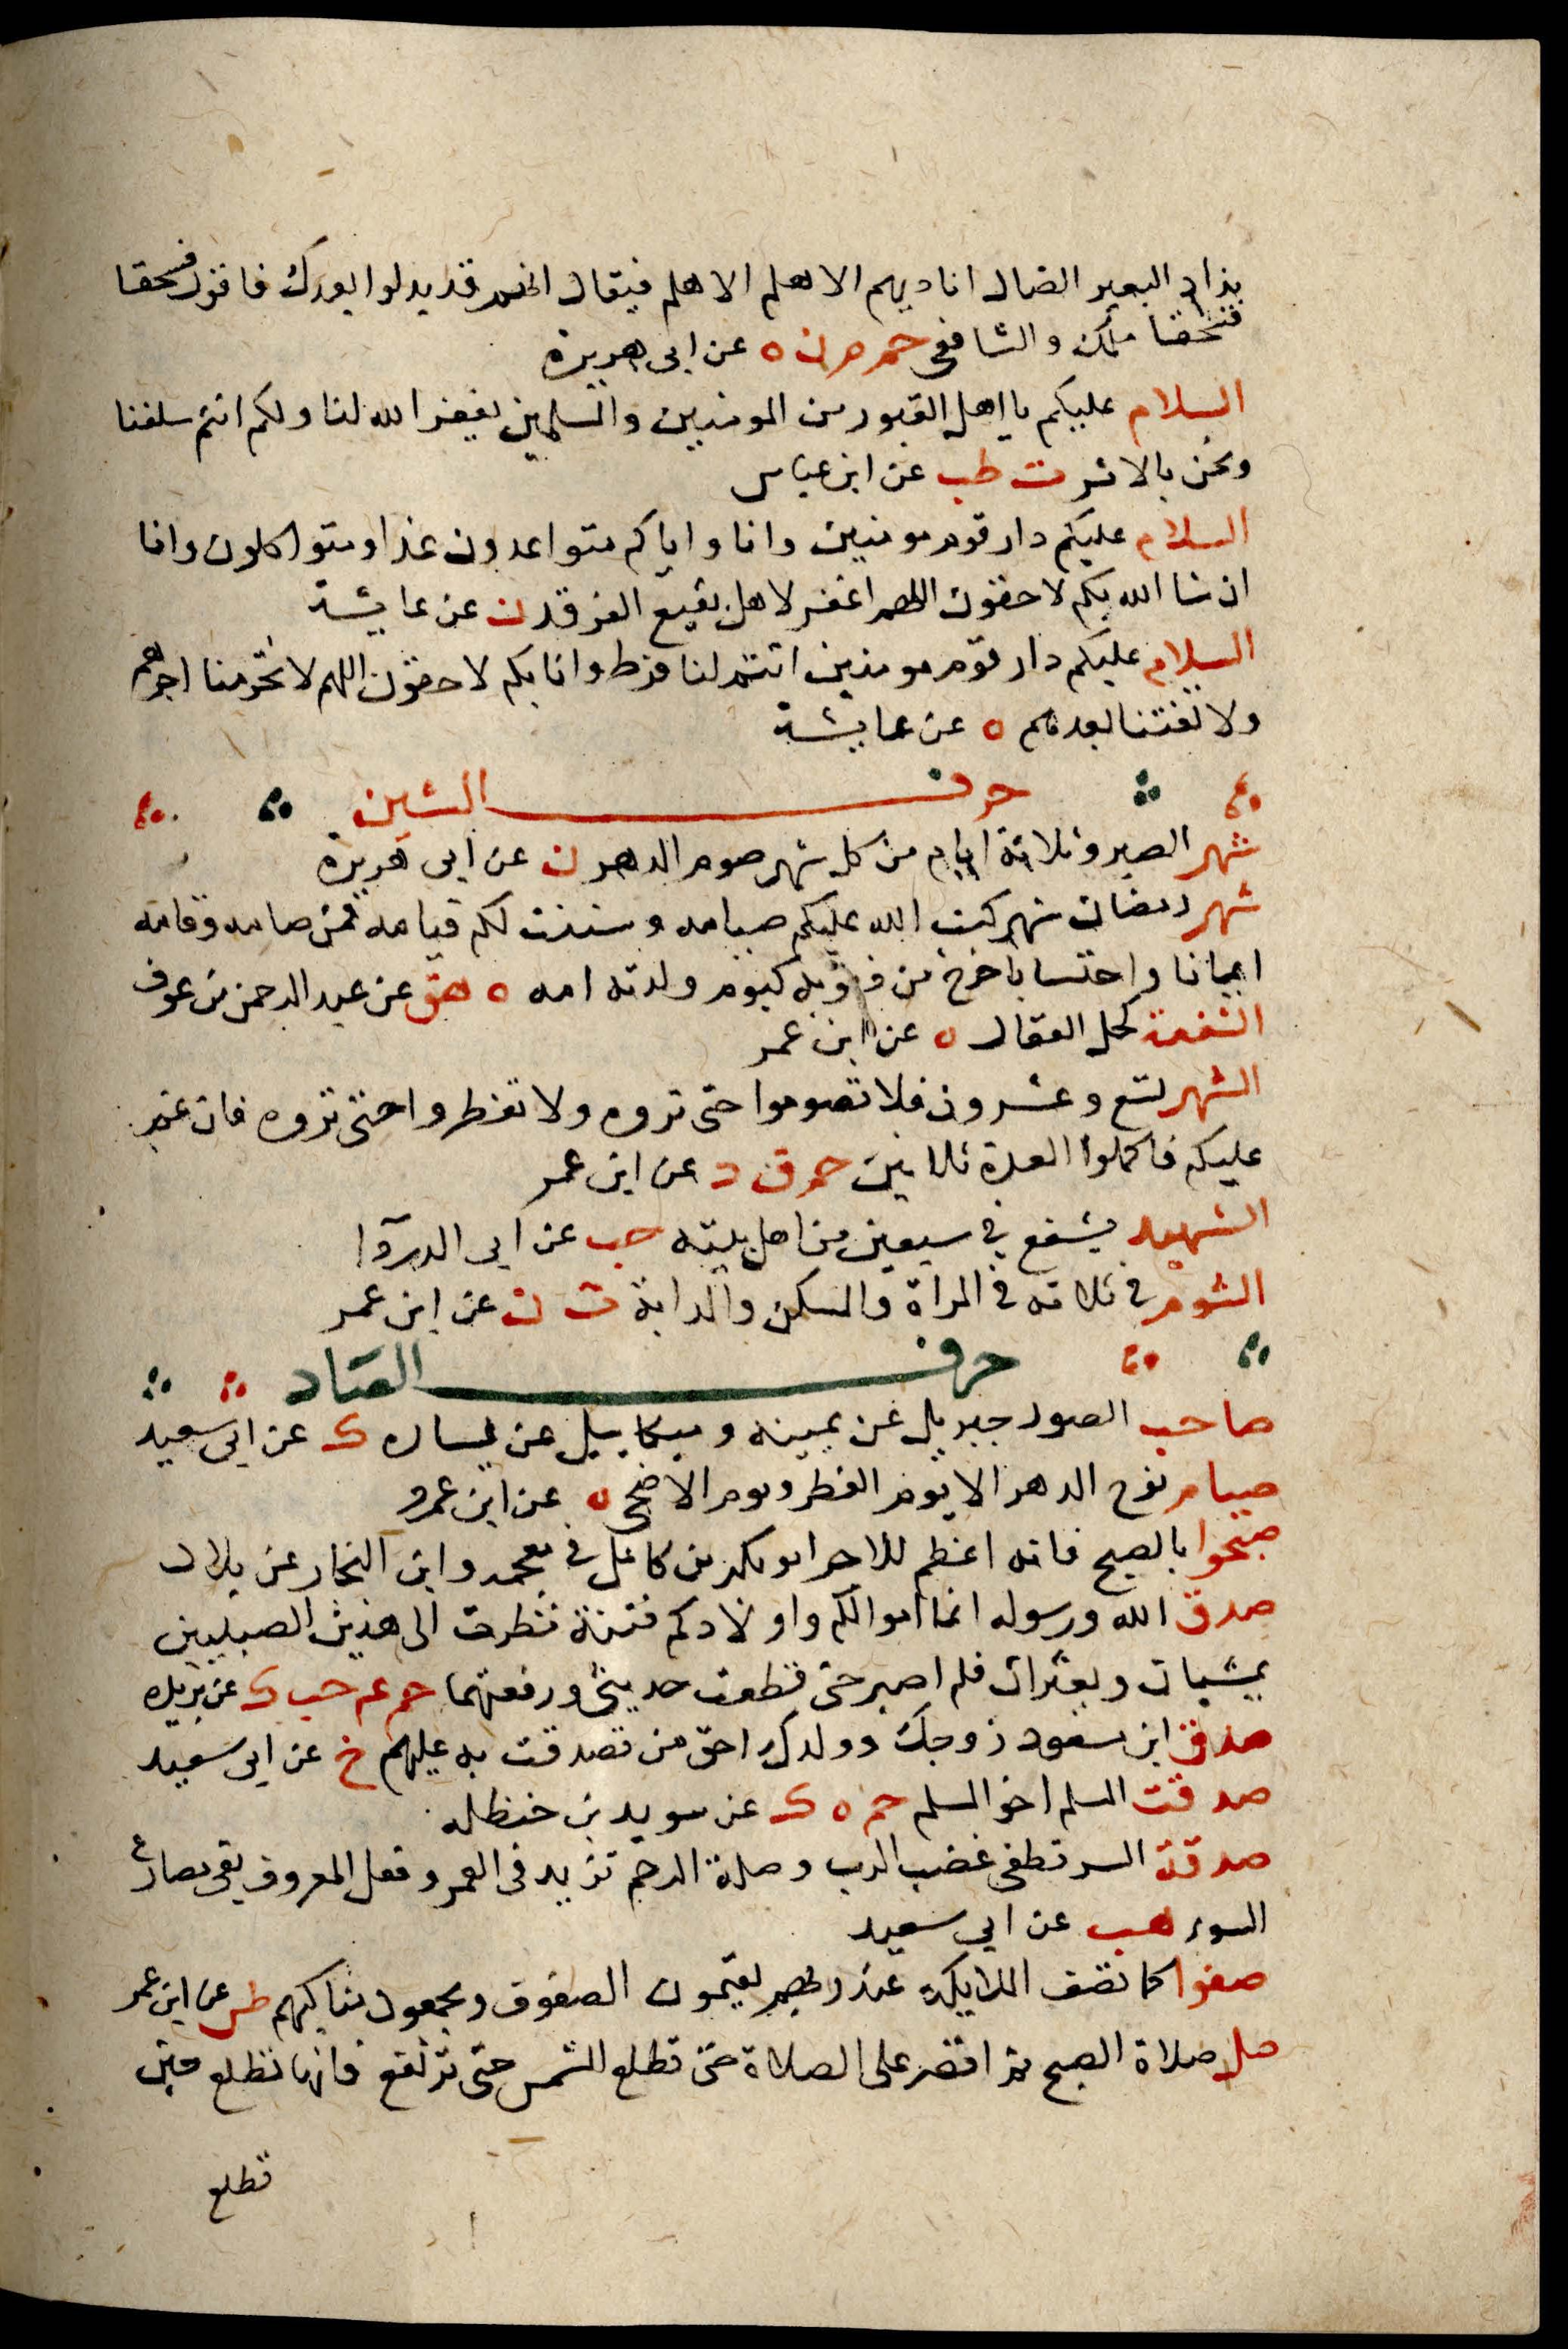 يذاد البعير الضال اناديهم الا هلم الا هلم فيقال انهم قد بدلوا بعدك فاقول فسحقا
فسحقا ملك والشافعي حم م ن ه عن ابي هريرة
السلام عليكم يا اهل القبور من المومنين والمسلمين يغفر الله لنا ولكم انتم سلفنا
ونحن بالاثر ت طب عن ابن عباس
السلام عليكم دار قوم مومنين وانا واياكم متواعدون غدا ومتواكلون وانا
ان شا الله بكم لاحقون اللهم اغفر لاهل بقيع الغرقد ن عن عايشة
السلام عليكم دار قوم مومنين انتم لنا فرط وانا بكم لاحقون اللهم لا تحرمنا اجرهم
ولا تفتنا بعدهم ه عن عايشة
حرف الشين
شهر الصبر وثلاثة ايام من كل شهر صوم الدهر ن عن ابي هريرة
شهر رمضان شهر كتب الله عليكم صيامه وسننت لكم قيامه فمن صامه وقامه
ايمانا واحتسابا خرج من ذنوبه كيوم ولدته امه ه هق عن عبد الرحمن بن عوف
الشفعة كحل العقال ه عن ابن عمر
الشهر تسع وعشرون فلا تصوموا حتى تروه ولا تفطروا حتى تروه فان غم
عليكم فاكملوا العدة ثلاثين حم ق د عن ابن عمر
الشهيد يشفع في سبعين من اهل بيته حب عن ابي الدردآ
الشوم في ثلاثه في المراة والمسكن والدابة ت ن عن ابن عمر
حرف الصاد
صاحب الصور جبريل عن يمينه وميكاييل عن يساره ك عن ابي سعيد
صيام نوح الدهر الا يوم الفطر ويوم الاضحى ه عن ابن عمرو
صبحوا بالصبح فانه اعظم للاجر ابو بكر بن كامل في معجمه وابن النجار عن بلال
صدق الله ورسوله انما اموالكم واولادكم فتنة نظرت الى هذين الصبيين
يمشيان ويعثران فلم اصبر حتى قطعت حديثي ورفعتهما حم عم حب ك عن بريدة
صدق ابن مسعود زوجك وولدك احق من تصدقت به عليهم خ عن ابي سعيد
صدقت المسلم اخو المسلم حم ه ك عن سويد بن حنظله
صدقة السر تطفي غضب الرب وصلة الرحم تزيد في العمر وفعل المعروف يقي مصارع
السوء هب عن ابي سعيد
صفوا كما تصف الملايكة عند ربهم يقيمون الصفوف ويجمعون مناكبهم طس عن ابن عمر
صل صلاة الصبح ثم اقصر على الصلاة حتى تطلع الشمس حتى ترتفع فانها تطلع حين
تطلع